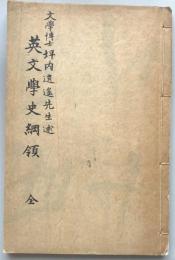 文學博士坪内逍遙先生述
英文學史綱領 全